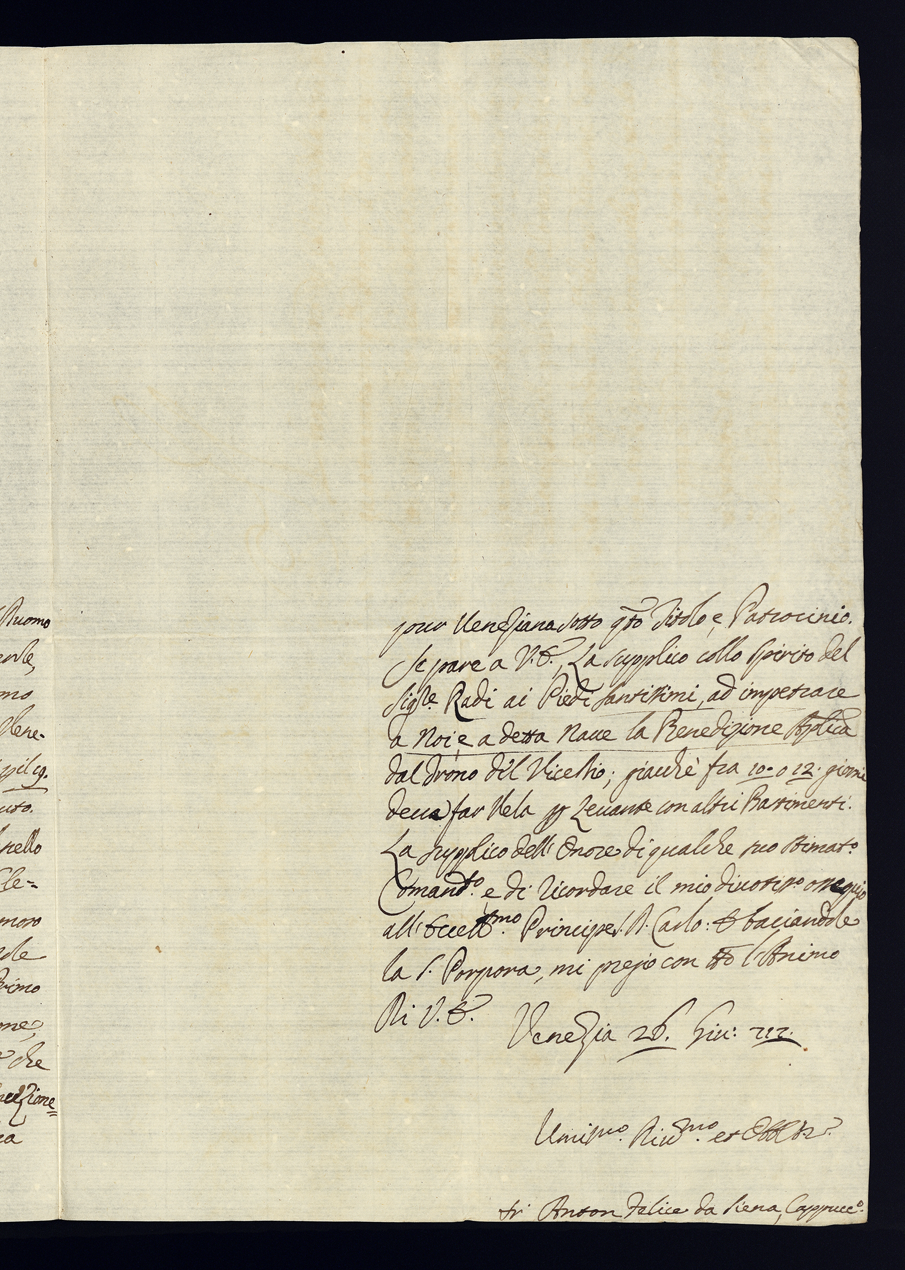 Ruomo
mo
Vene-
uto.
nello
moro
rimo
che
pur Veneziana sotto qto Titolo, e Patrocinio.
Se pare a V. E., La supplico collo spirito del
Sigre Radi ai Piedi santissimi, ad impetrare
a Noi, e a detta Nave la Benedizione Aplica
dal Trono del Vicedio; giacchè fra 10. o 12. giorni
deva far Vela pr Levante con altri Bastimenti.
La supplico dell' Onore di qualche suo stimato
Comando. e di ricordare il mio divotismo ossequio
all' Eccellmo. Principe D. Carlo: E baciandole
la S. Porpora, mi pregio con tto l'Animo
Di V. E.
Venezia 26. Giu: 712.
Umilmo. Divmo. et Obblmo.
fr. Anton Felice da Siena, Cappucco.